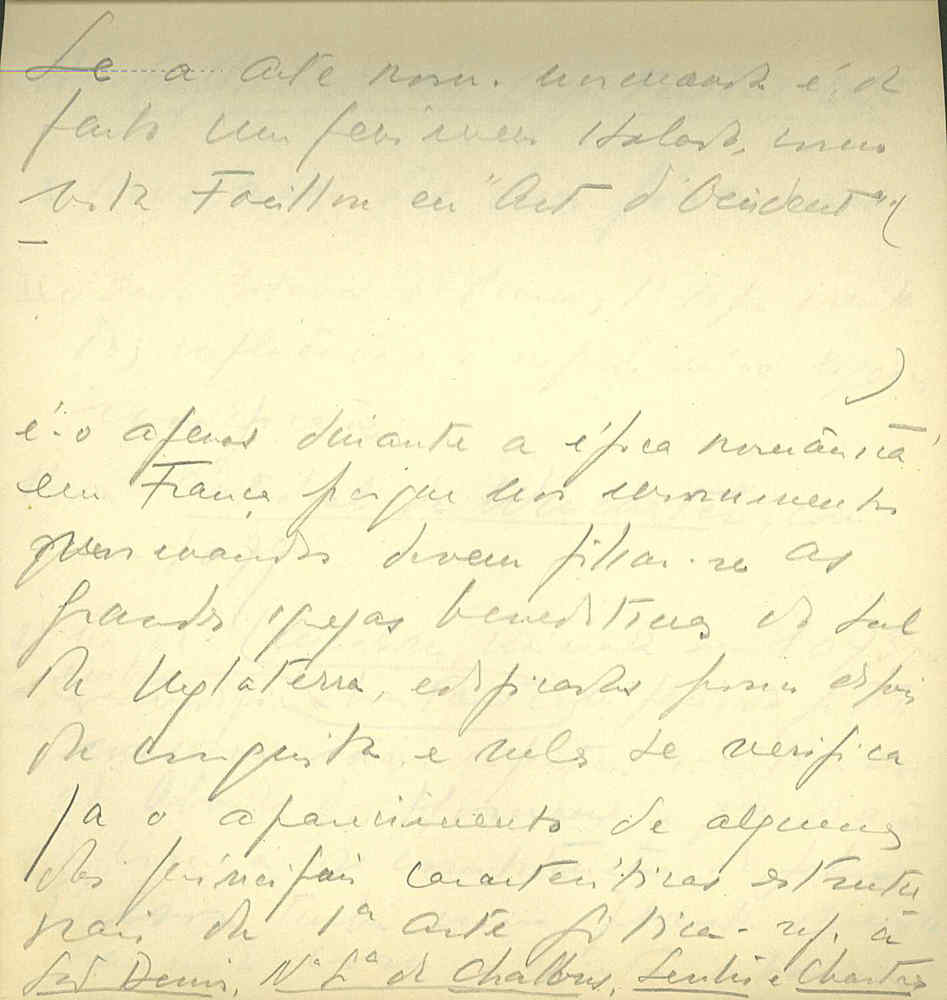 Se a arte rom. normanda é, de
facto um fenomeno isolado, como
nota Focillon em "Art d'Occident" (
é-o apenas durante a época românica
em França porque nos monumentos
normandos devem filiar-se as
grandes igrejas beneditinas do Sul
da Inglaterra, edificadas pouco depois
da conquista e nelas se verifica
já o aparecimento de algumas
das principais características estrutu
rais da 1ª arte gótica - ref. à
St Denis, Nª Sª de Challons, Senlis e Chartres